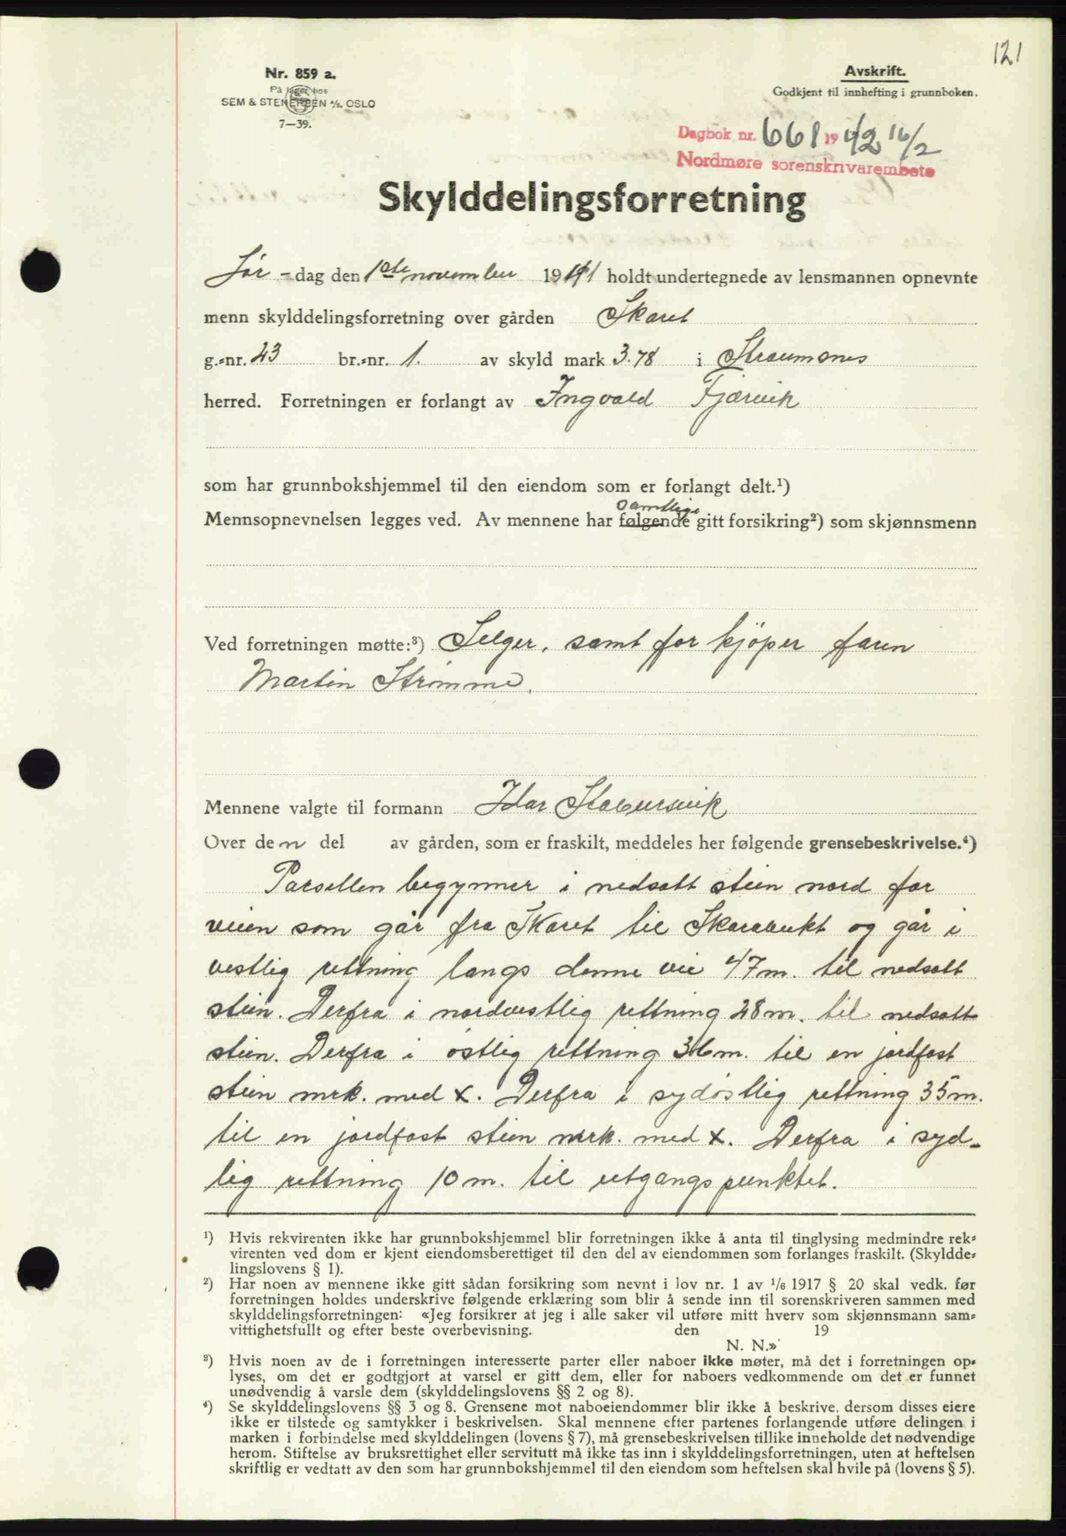 121
Nr. 859 a.
På lager hos
SEM & STENERSEN A/S. OSLO
7—39.
Avskrift.
Godkjent til innhefting i grunnboken.
Dagbok nr. 661 1942 16/2
Nordmøre sorenskrivarembete
Skylddelingsforretning
Lør-dag den 1ste november 1941 holdt undertegnede av lensmannen opnevnte
menn skylddelingsforretning over gården Skaret
g.-nr. 43 br.-nr. 1. av skyld mark 3.78 i Straumsnes
herred. Forretningen er forlangt av Ingvald Fjærvik
som har grunnbokshjemmel til den eiendom som er forlangt delt.¹)
samtlige
Mennsopnevnelsen legges ved. Av mennene har følgende gitt forsikring²) som skjønnsmenn
Ved forretningen møtte:³) Selger, samt for kjöper faren
Martin Strømme.
Mennene valgte til formann Idar Stabursvik
Over den del av gården, som er fraskilt, meddeles her følgende grensebeskrivelse.⁴)
Parsellen begynner i nedsatt stein nord for
veien som går fra Skaret til Skarabukt og går i
vestlig rettning langs denne vei 47 m. til nedsatt
stein. Derfra i nordvestlig rettning 28 m. til nedsatt
stein. Derfra i östlig rettning 36 m. til en jordfast
stein mrk. med x. Derfra i sydöstlig rettning 35 m.
til en jordfast stein mrk. med x. Derfra i syd-
lig rettning 10 m. til utgangspunktet.
¹) Hvis rekvirenten ikke har grunnbokshjemmel blir forretningen ikke å anta til tinglysing medmindre rek-
virenten ved dom er kjent eiendomsberettiget til den del av eiendommen som forlanges fraskilt. (Skyldde-
lingslovens § 1).
²) Har noen av mennene ikke gitt sådan forsikring som nevnt i lov nr. 1 av 1/6 1917 § 20 skal vedk. før
forretningen holdes underskrive følgende erklæring som blir å sende inn til sorenskriveren sammen med
skylddelingsforretningen: «Jeg forsikrer at jeg i alle saker vil utføre mitt hverv som skjønnsmann sam-
vittighetsfullt og efter beste overbevisning. den 19
N. N.»
³) Hvis noen av de i forretningen interesserte parter eller naboer ikke møter, må det i forretningen op-
lyses, om det er godtgjort at varsel er gitt dem, eller for naboers vedkommende om det er funnet
unødvendig å varsle dem (skylddelingslovens §§ 2 og 8).
⁴) Se skylddelingslovens §§ 3 og 8. Grensene mot naboeiendommer blir ikke å beskrive, dersom disses eiere
ikke er tilstede og samtykker i beskrivelsen. Skal mennene efter partenes forlangende utføre delingen i
marken i forbindelse med skylddelingen (lovens § 7), må grensebeskrivelsen tillike inneholde det nødvendige
herom. Stiftelse av bruksrettighet eller servitutt må ikke tas inn i skylddelingsforretningen, uten at heftelsen
skriftlig er vedtatt av den som har grunnbokshjemmel til den eiendom som heftelsen skal hvile på (lovens § 5).